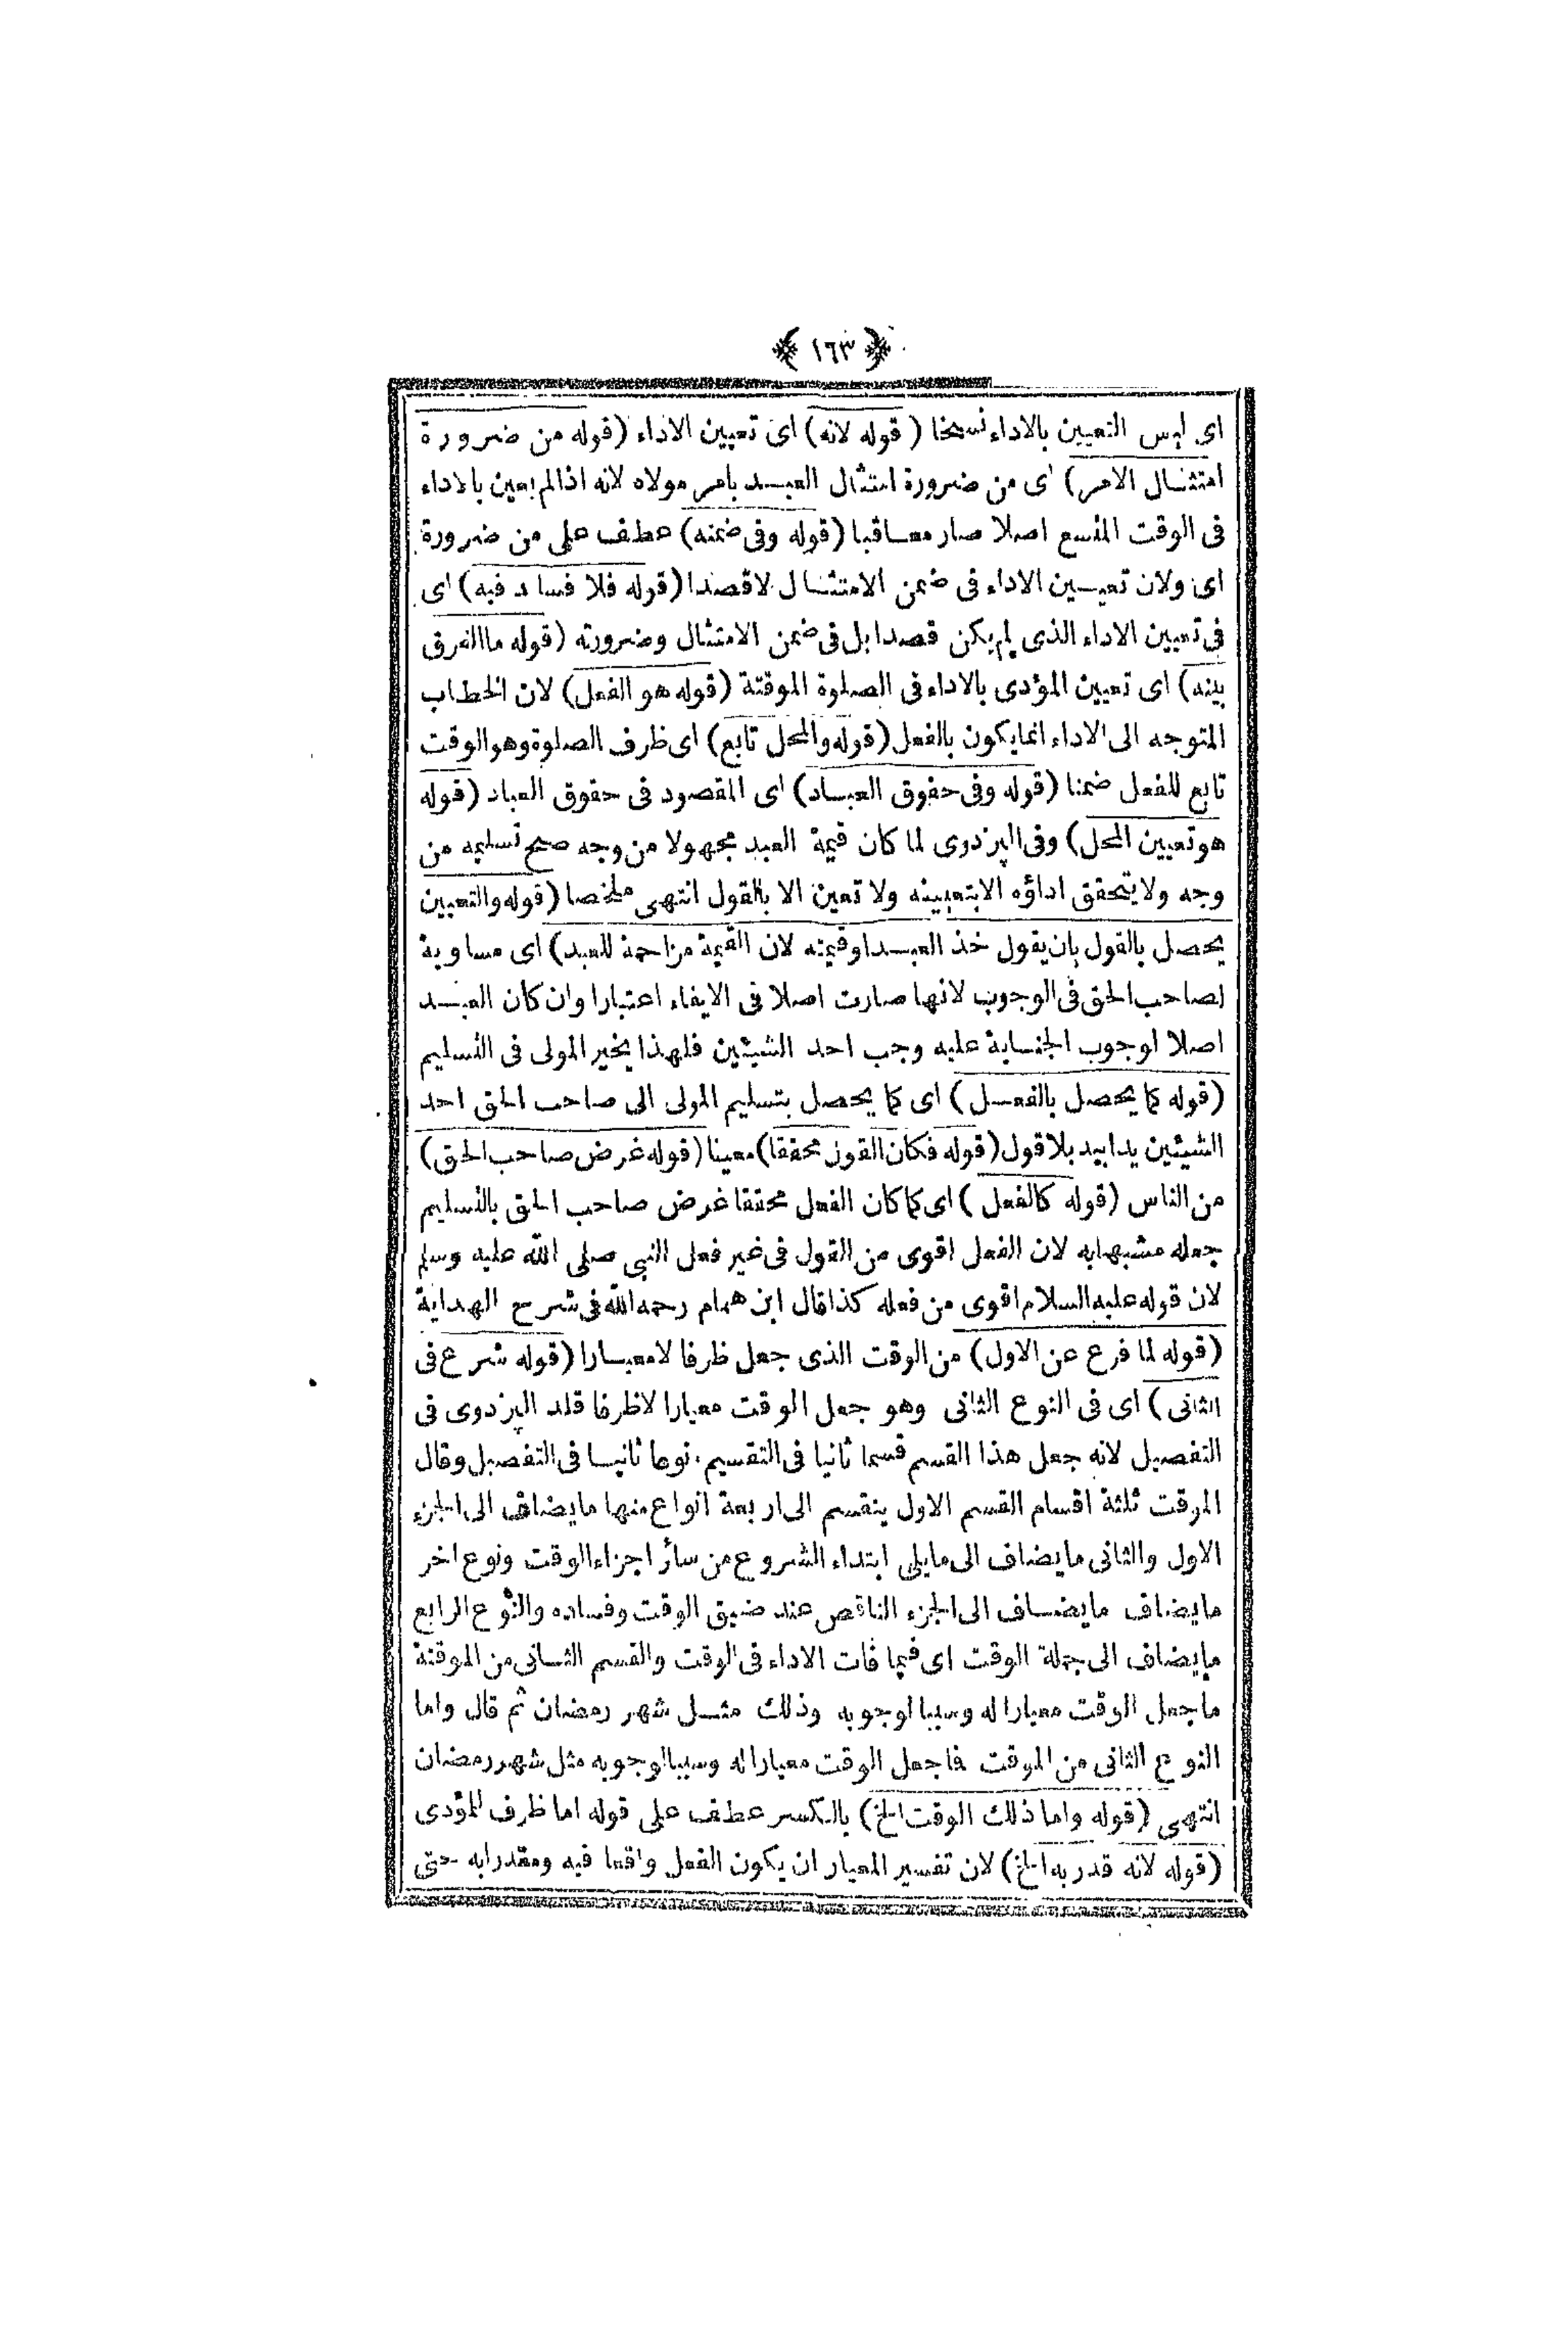 ﴿ ١٦٣ ﴾
اى ليس التعيين بالاداء نسخا ( قوله لانه ) اى تعيين الاداء ( قوله من ضرورة
امتثال الامر ) اى من ضرورة امتثال العبد بامر مولاه لانه اذا لم يعين بالاداء
فى الوقت المتسع اصلا صار معاقبا ( قوله وفى ضمنه ) عطف على من ضرورة
اى ولان تعيين الاداء فى ضمن الامتثال لا قصدا ( قوله فلا فساد فيه ) اى
فى تعيين الاداء الذى لم يكن قصدا بل فى ضمن الامتثال وضرورته ( قوله ما الفرق
بينه ) اى تعيين المؤدى بالاداء فى الصلوة الموقتة ( قوله هو الفعل ) لان الخطاب
المتوجه الى الاداء انما يكون بالفعل ( قوله والمحل تابع ) اى ظرف الصلوة وهو الوقت
تابع للفعل ضمنا ( قوله وفى حقوق العباد ) اى المقصود فى حقوق العباد ( قوله
هو تعيين المحل ) وفى البزدوى لما كان قيمة العبد مجهولا من وجه صح تسليمه من
وجه ولا يتحقق اداؤه الا بتعيينه ولا تعين الا بالقول انتهى ملخصا ( قوله والتعيين
يحصل بالقول بان يقول خذ العبد او قيمته لان القيمة مزاحمة للعبد ) اى مساوية
لصاحب الحق فى الوجوب لانها صارت اصلا فى الايفاء اعتبارا وان كان العبد
اصلا لوجوب الجناية عليه وجب احد الشيئين فلهذا يخير المولى فى التسليم
( قوله كما يحصل بالفعل ) اى كما يحصل بتسليم المولى الى صاحب الحق احد
الشيئين يدا بيد بلا قول ( قوله فكان القول محققا ) معينا ( قوله غرض صاحب الحق )
من الناس ( قوله كالفعل ) اى كما كان الفعل محققا غرض صاحب الحق بالتسليم
جعله مشبها به لان الفعل اقوى من القول فى غير فعل النبى صلى الله عليه وسلم
لان قوله عليه السلام اقوى من فعله كذا قال ابن همام رحمه الله فى شرح الهداية
( قوله لما فرع عن الاول ) من الوقت الذى جعل ظرفا لا معيارا ( قوله شرع فى
الثانى ) اى فى النوع الثانى وهو جعل الوقت معيارا لا ظرفا قلد البزدوى فى
التفصيل لانه جعل هذا القسم قسما ثانيا فى التقسيم نوعا ثانيا فى التفصيل وقال
الموقت ثلثة اقسام القسم الاول ينقسم الى اربعة انواع منها ما يضاف الى الجزء
الاول والثانى ما يضاف الى ما يلى ابتداء الشروع من سائر اجزاء الوقت ونوع اخر
ما يضاف ما يضاف الى الجزء الناقص عند ضيق الوقت وفساده والنوع الرابع
ما يضاف الى جملة الوقت اى فيما فات الاداء فى الوقت والقسم الثانى من الموقتة
ما جعل الوقت معيارا له وسببا لوجوبه وذلك مثل شهر رمضان ثم قال واما
النوع الثانى من الموقت فما جعل الوقت معيارا له وسببا لوجوبه مثل شهر رمضان
انتهى ( قوله واما ذلك الوقت الخ ) بالكسر عطف على قوله اما ظرف المؤدى
( قوله لانه قدر به الخ ) لان تفسير المعيار ان يكون الفعل واقعا فيه ومقدرا به حتى